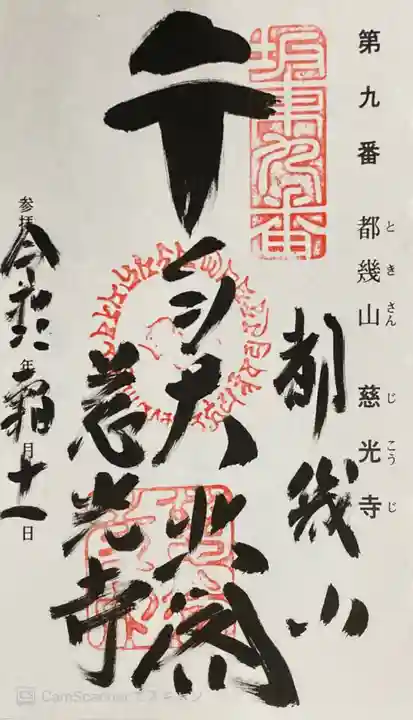 第九番 都幾山 慈光寺
とき さん じ こう じ
坂東九番
都幾山
千手大悲閣
慈光寺
参拝 令和 年霜月十一日
CS CamScannerでスキャン